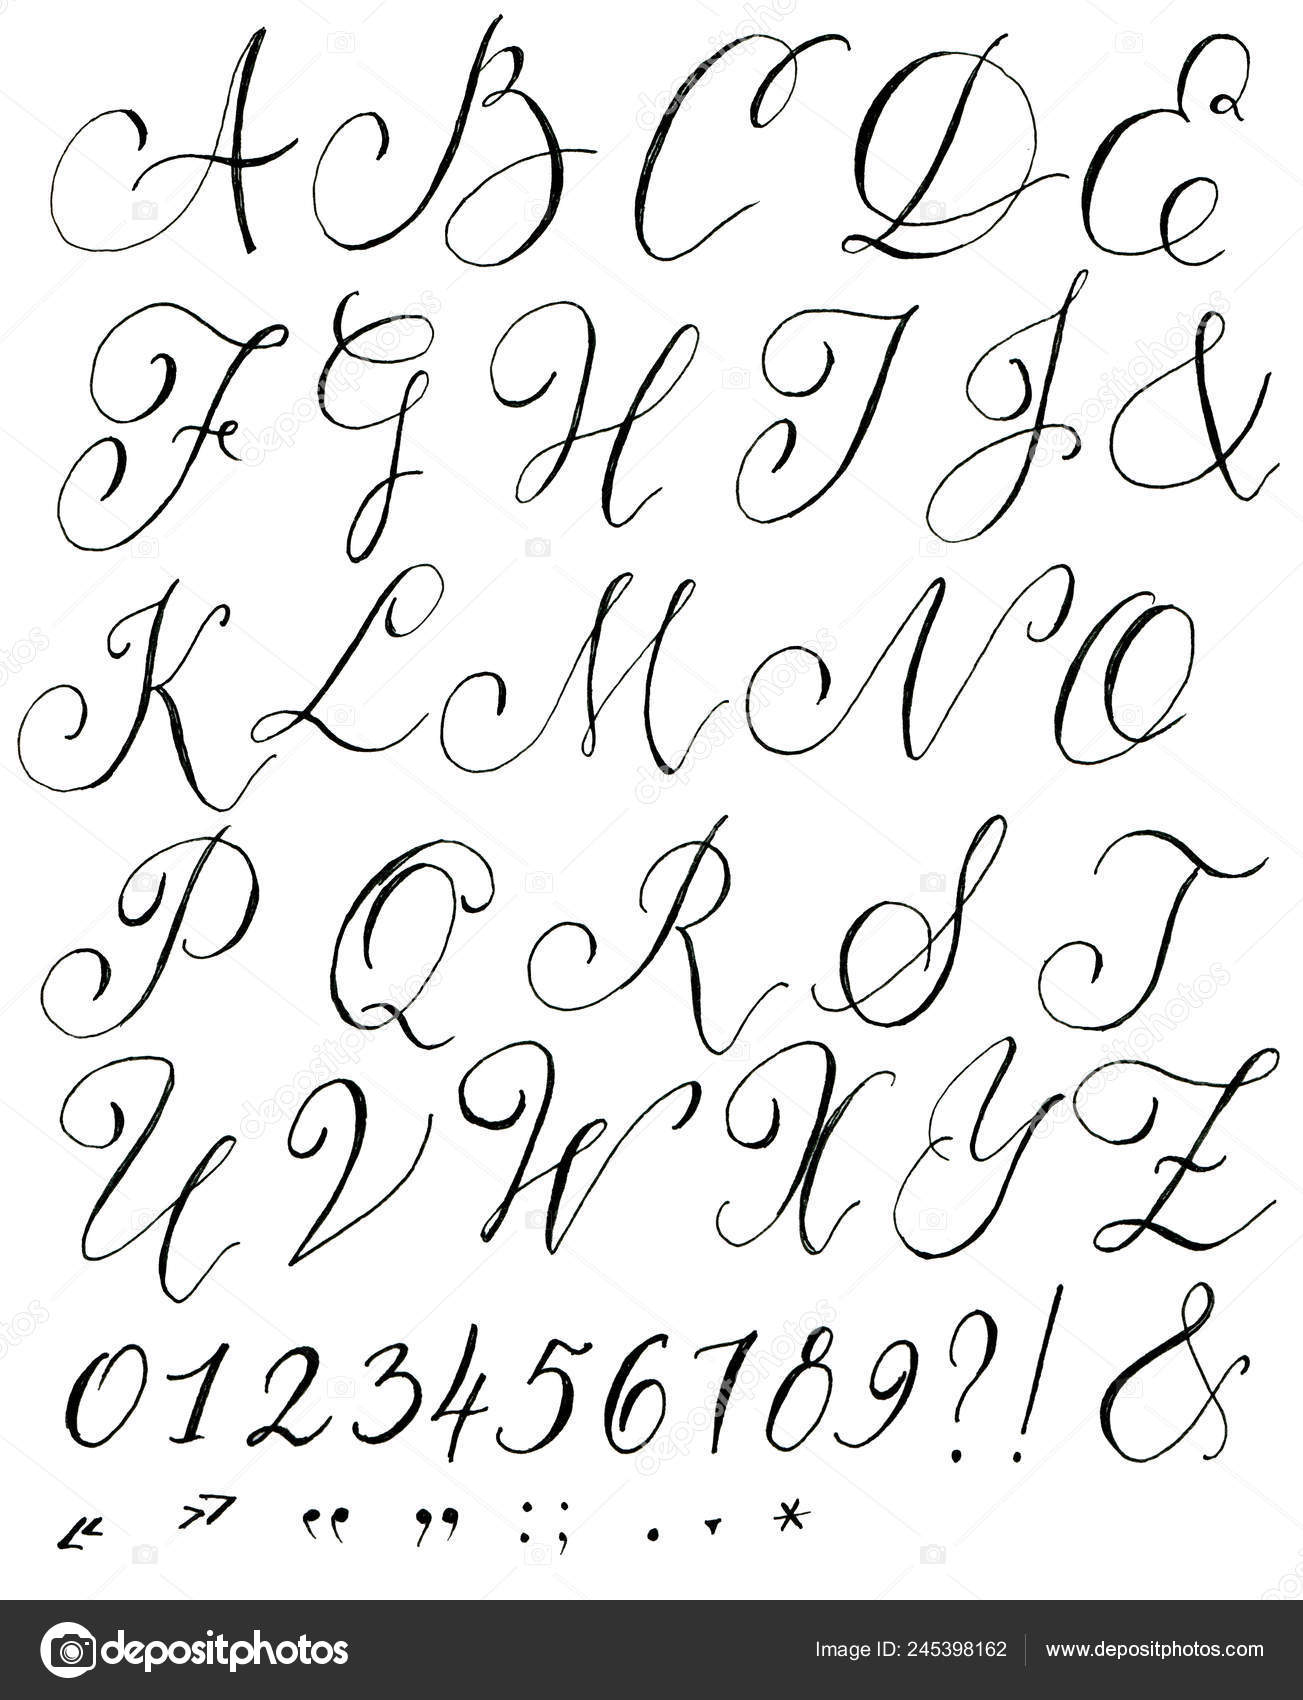 A B C D E
F G H I J &
K L M N O
P Q R S T
U V W X Y Z
0 1 2 3 4 5 6 7 8 9 ? ! &
« » “ ” : ; . , *
depositphotos Image ID: 245398162 www.depositphotos.com